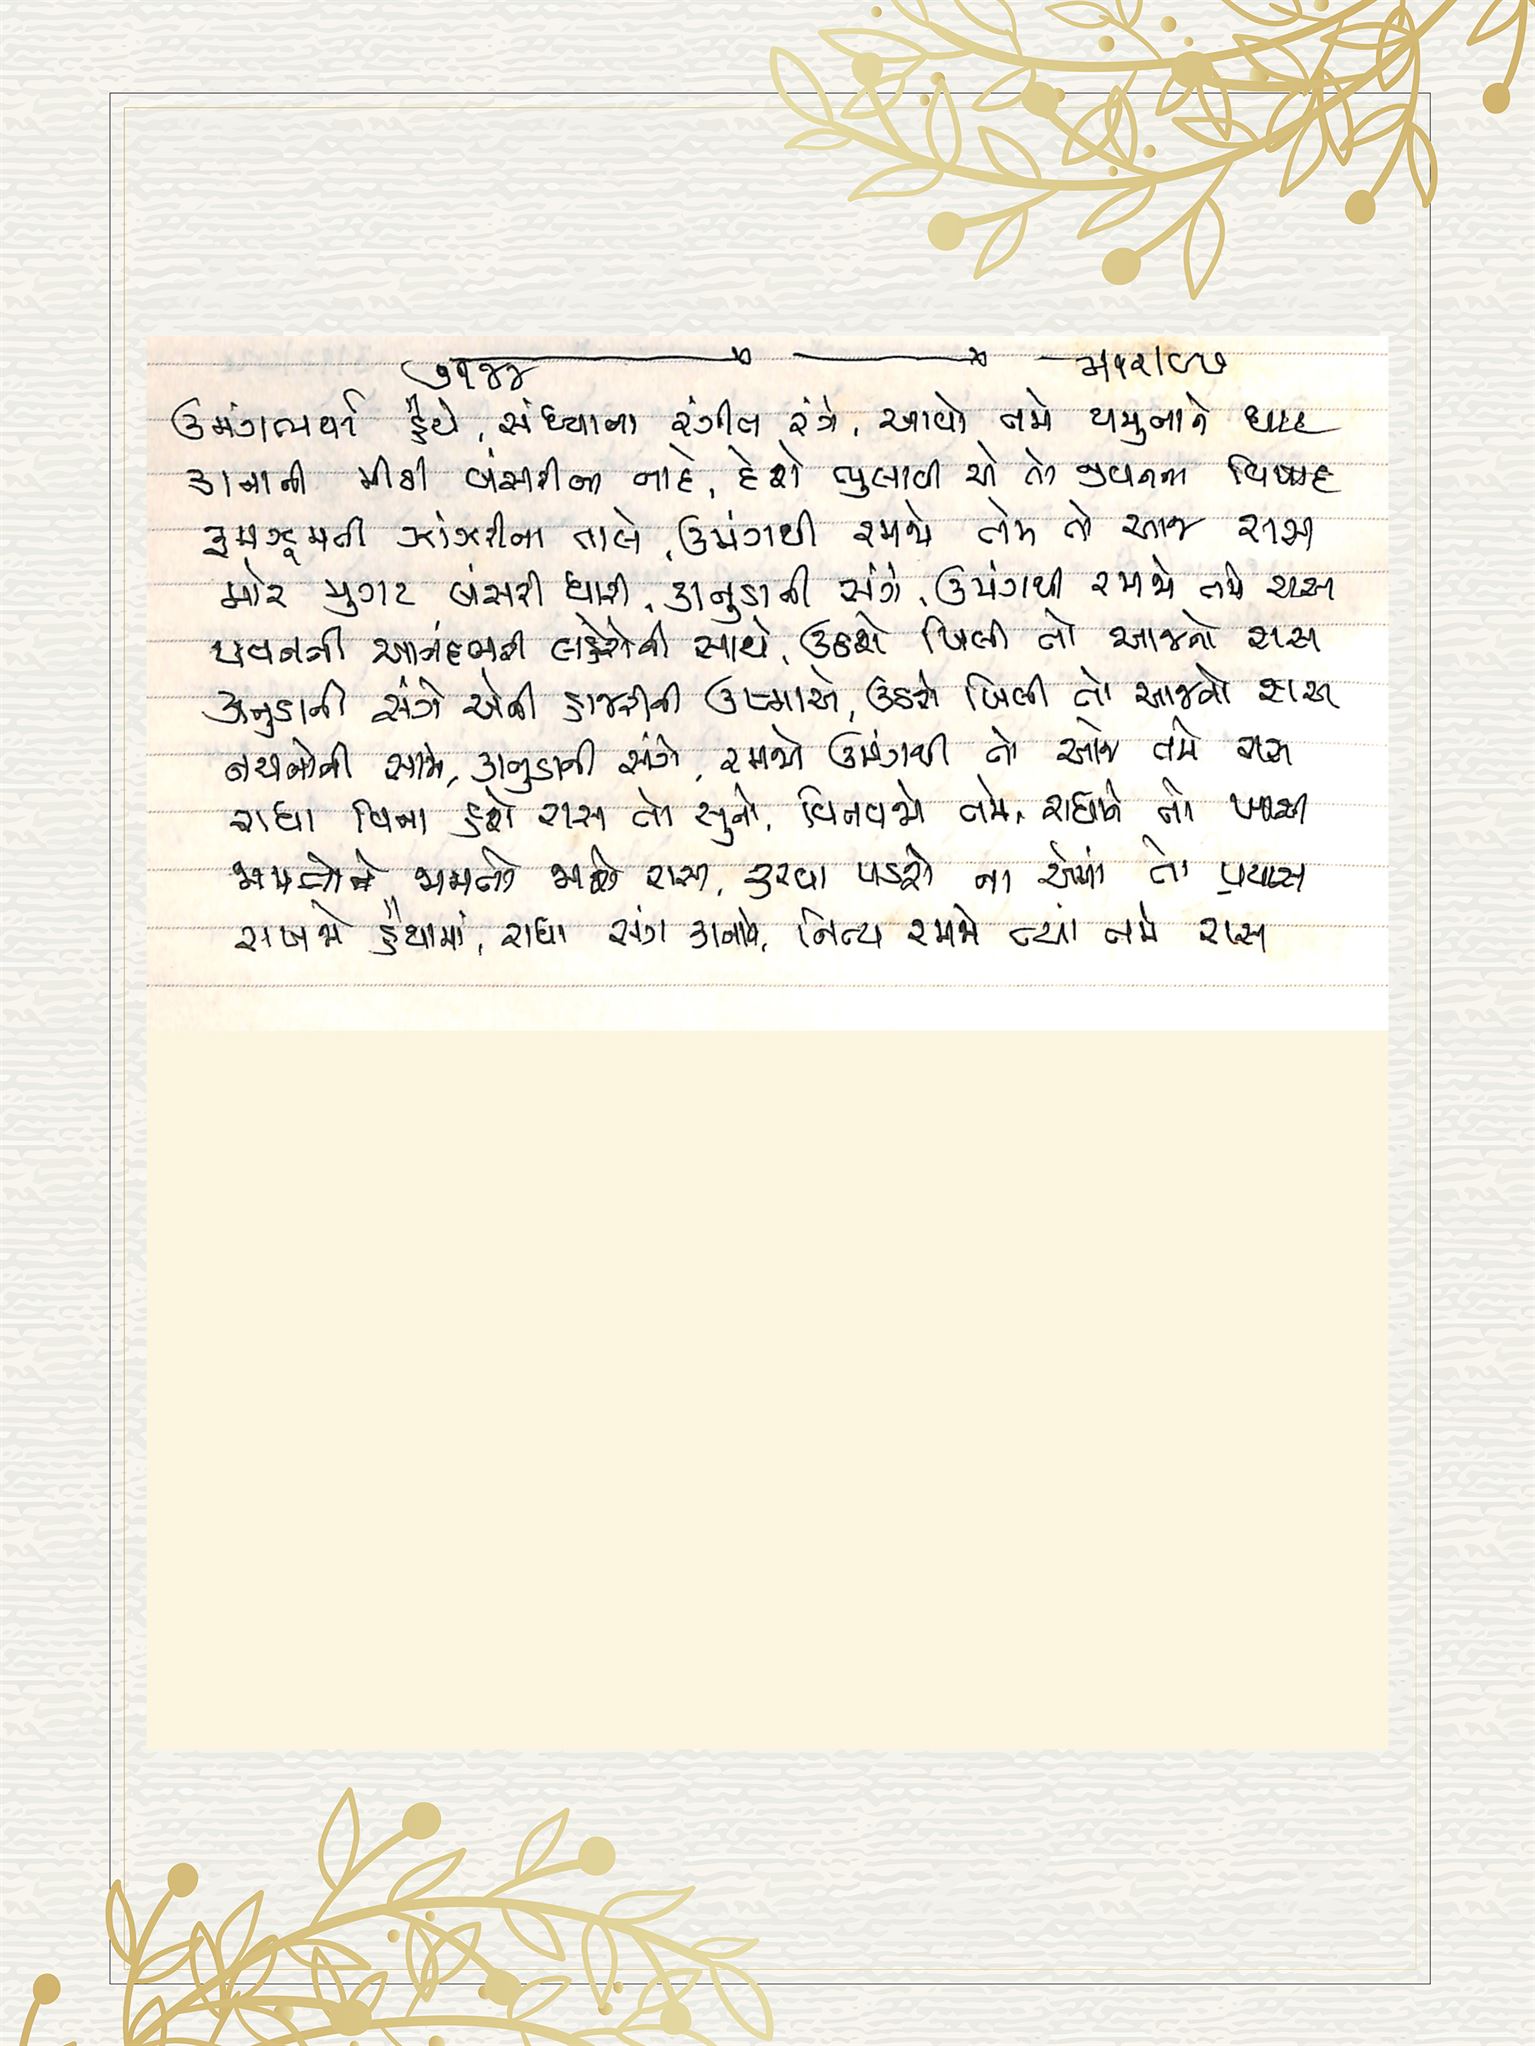 ૭૧૪૪
ઉમંગભર્યા હૈયે, સંધ્યાના રંગીલ રંગે, આવો તમે યમુનાને ઘાટ
કાનાની મીઠી બંસરીના નાદે, દેશે ભુલાવી એ તો જીવનના વિખવાદ
રૂમઝૂમતી ઝાંઝરીના તાલે, ઉમંગથી રમજો તમે તો આજ રાસ
મોર મુગટ બંસરી ધારી, કાનુડાની સંગે, ઉમંગથી રમજો તમે રાસ
પવનની આનંદભરી લહેરોની સાથે, ઉઠશે ખિલી તો આજનો રાસ
કાનુડાની સંગે એની હાજરીની ઉષ્માએ, ઉઠશે ખિલી તો આજનો રાસ
નયનોની સામે, કાનુડાની સંગે, રમજો ઉમંગથી તો આજ તમે રાસ
રાધા વિના હશે રાસ તો સુનો, વિનવજો તમે, રાધાને તો ખાસ
જામતો જાશે રાસ, કરવા પડશે ના એમાં તો પ્રયાસ
રાખજો હૈયામાં, રાધા સંગ કાનાને, નિત્ય રમજો ત્યાં તમે રાસ